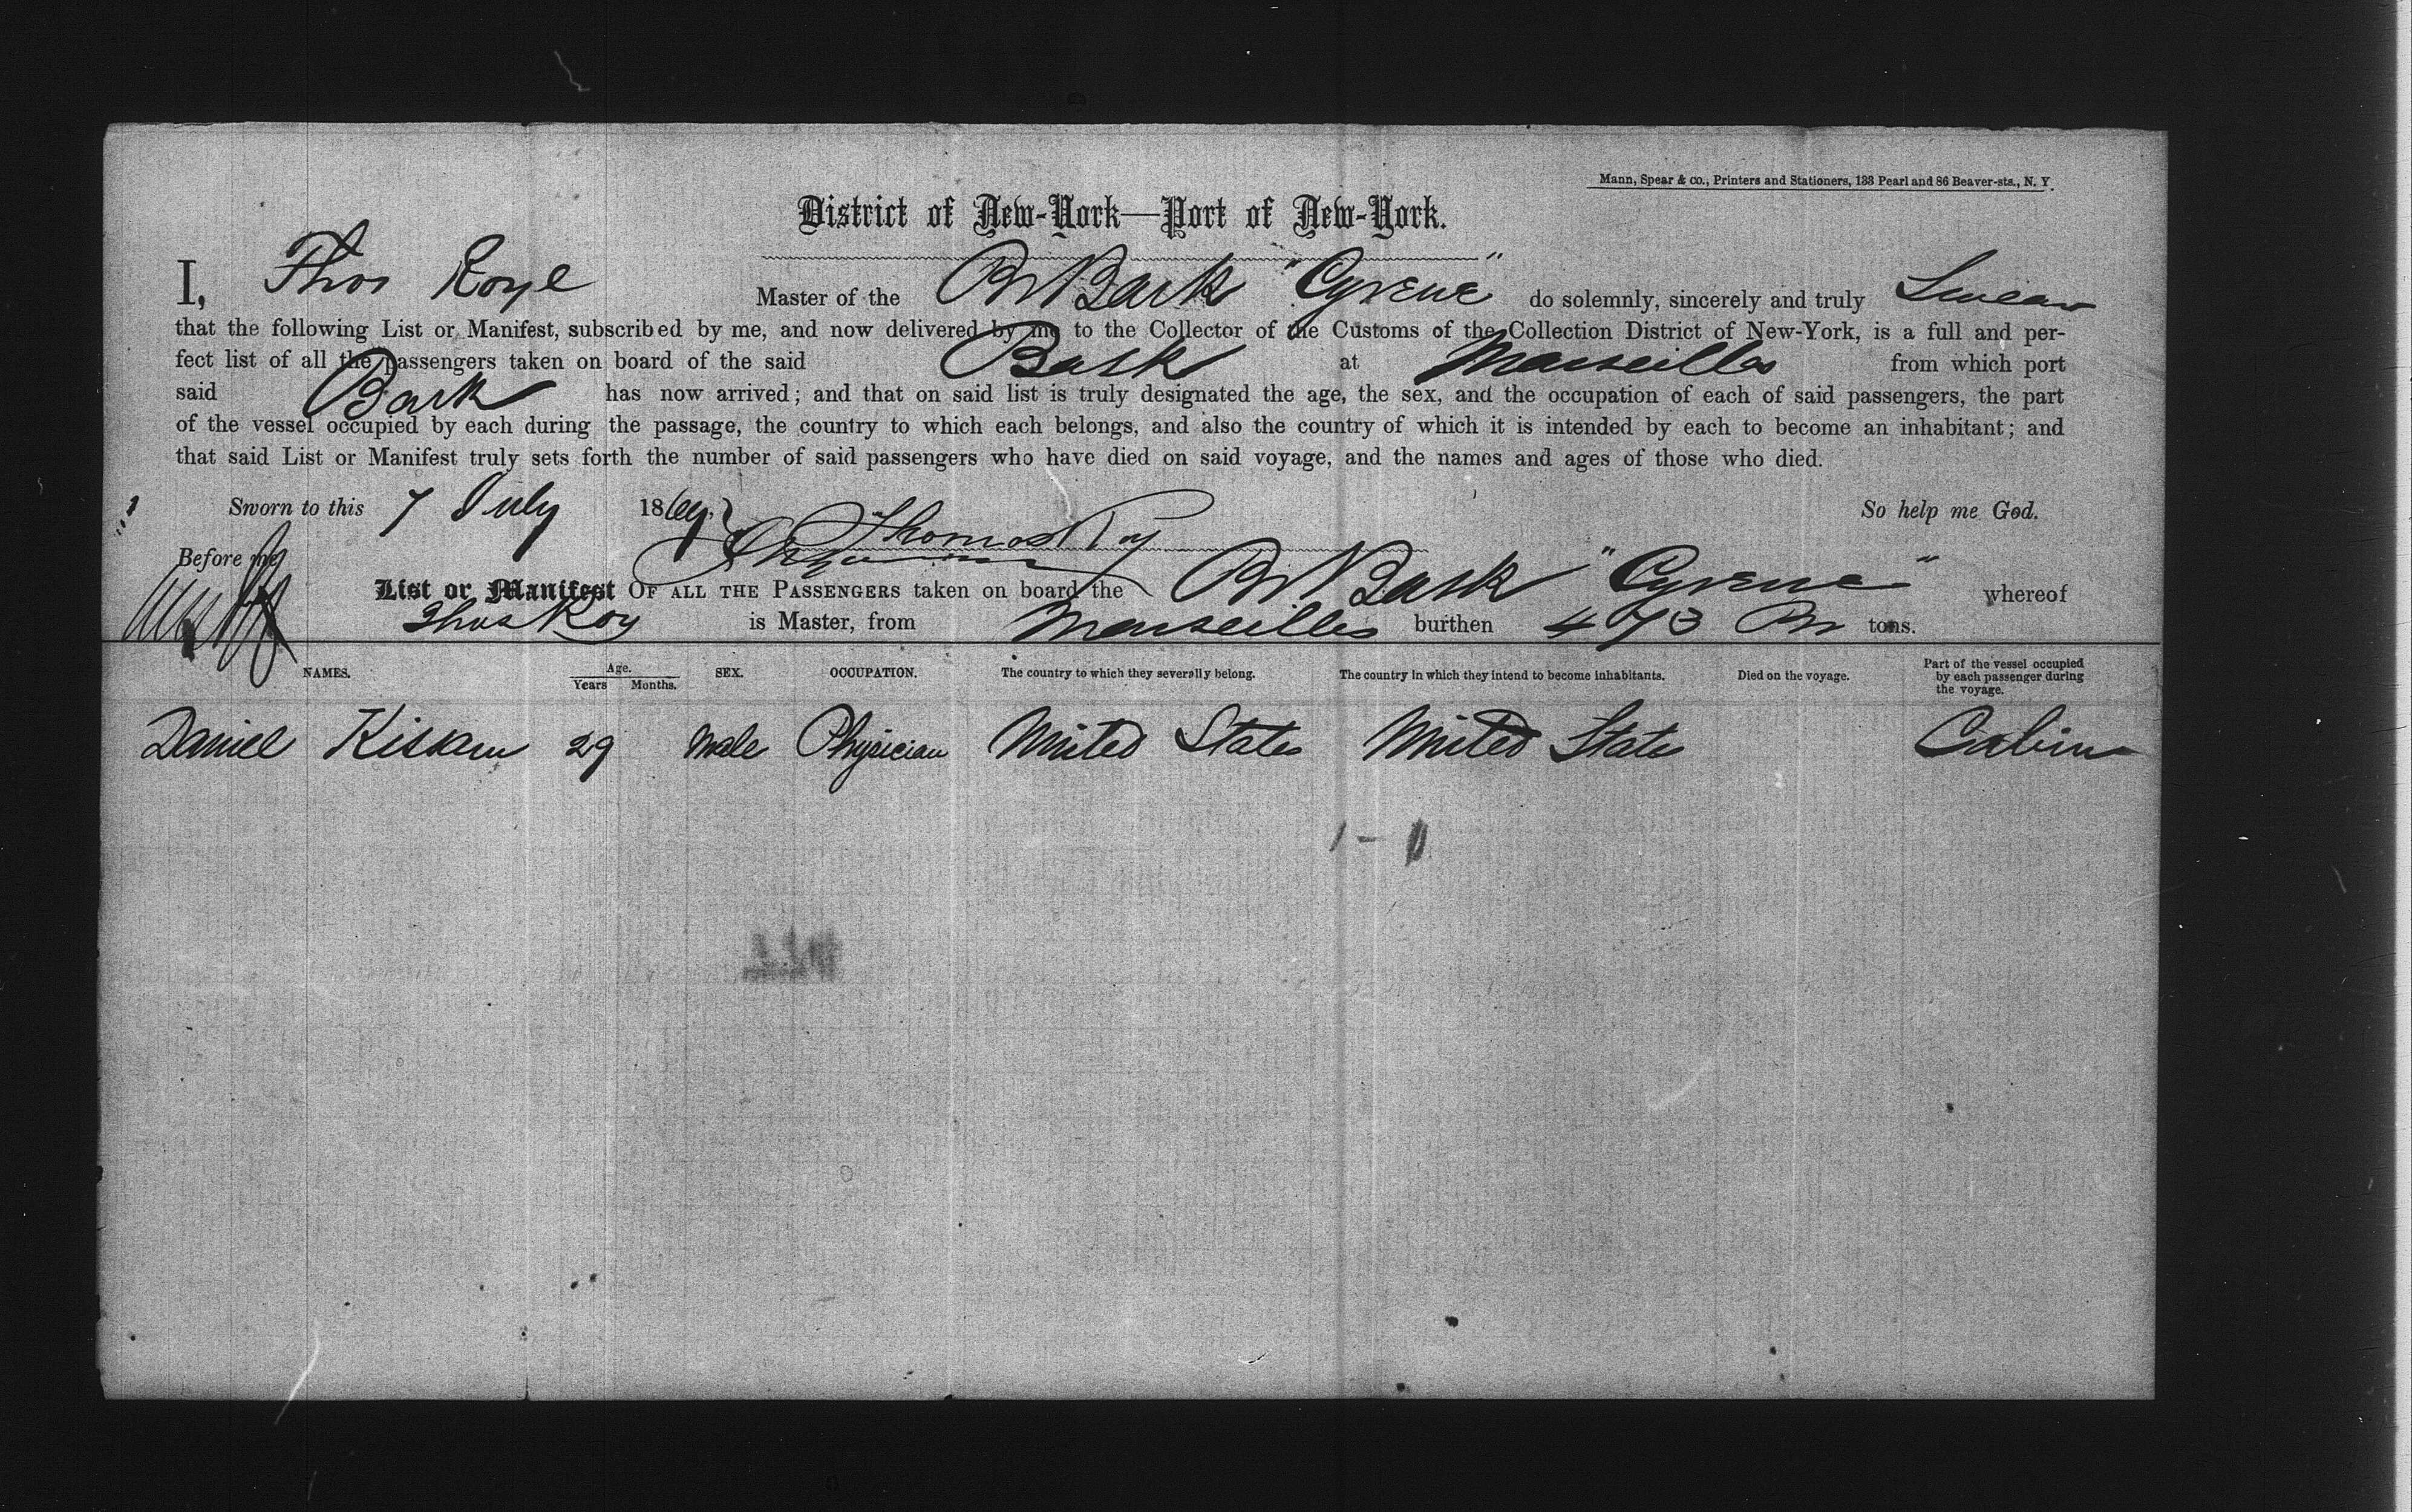 Mann, Spear & co., Printers and Stationers, 133 Pearl and 86 Beaver-sts., N. Y.
District of New-York—Port of New-York.
I, Thos Roye Master of the Br Bark "Cyrene" do solemnly, sincerely and truly Swear
that the following List or Manifest, subscribed by me, and now delivered by me to the Collector of the Customs of the Collection District of New-York, is a full and per-
fect list of all the passengers taken on board of the said Bark at Marseilles from which port
said Bark has now arrived; and that on said list is truly designated the age, the sex, and the occupation of each of said passengers, the part
of the vessel occupied by each during the passage, the country to which each belongs, and also the country of which it is intended by each to become an inhabitant; and
that said List or Manifest truly sets forth the number of said passengers who have died on said voyage, and the names and ages of those who died.
Sworn to this 7 July 1869 Thomas Roy So help me God.
Before me
List or Manifest OF ALL THE PASSENGERS taken on board the Br Bark "Cyrene" whereof
Thos Roy is Master, from Marseilles burthen 473 Br tons.
NAMES. Age. Years Months. SEX. OCCUPATION. The country to which they severally belong. The country in which they intend to become inhabitants. Died on the voyage. Part of the vessel occupied by each passenger during the voyage.
Daniel Kissam 29 Male Physician United States United States Cabin